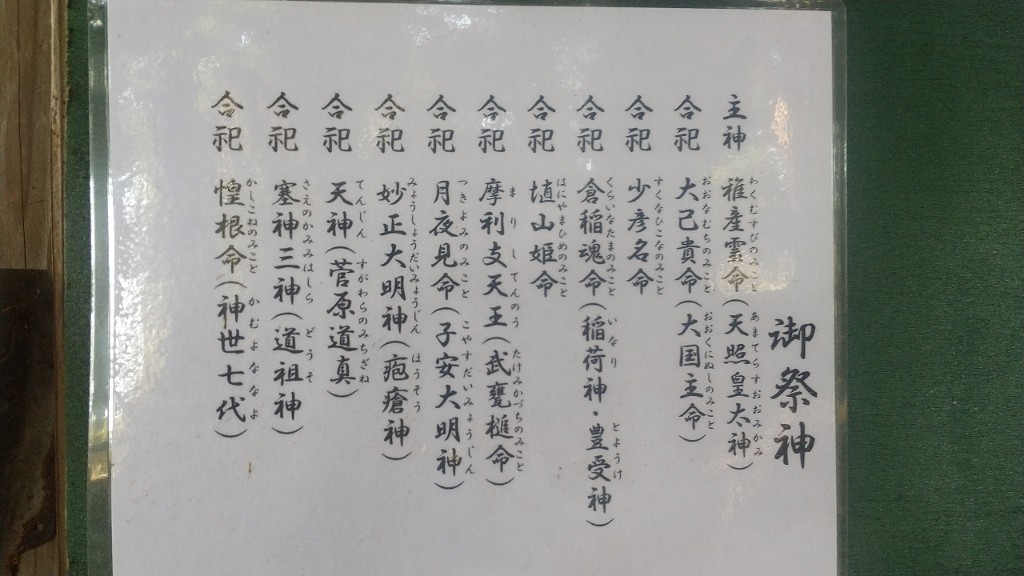 御祭神
主神 稚産霊命(天照皇太神)
わくむすびのみこと あまてらすおおみかみ
合祀 大己貴命(大国主命)
おおなむちのみこと おおくにぬしのみこと
合祀 少彦名命
すくなひこなのみこと
合祀 倉稲魂命(稲荷神・豊受神)
くらいなたまのみこと いなり とようけ
合祀 埴山姫命
はにやまひめのみこと
合祀 摩利支天王(武甕槌命)
まりしてんのう たけみかづちのみこと
合祀 月夜見命(子安大明神)
つきよみのみこと こやすだいみょうじん
合祀 妙正大明神(疱瘡神)
みょうしょうだいみょうじん ほうそう
合祀 天神(菅原道真)
てんじん すがわらのみちざね
合祀 塞神三神(道祖神)
さえのかみみはしら どうそ
合祀 惶根命(神世七代)
かしこねのみこと かむよななよ